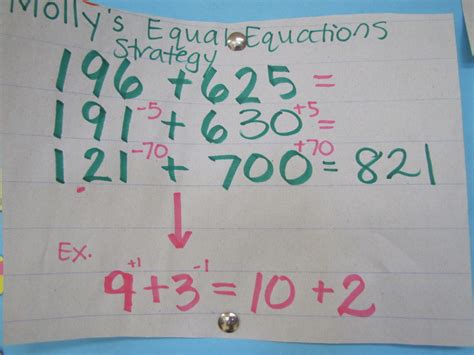 Molly's Equal Equations
Strategy
196 + 625 =
191 -5 + 630 +5 =
121 -70 + 700 +70 = 821
Ex.
9 +1 + 3 -1 = 10 + 2